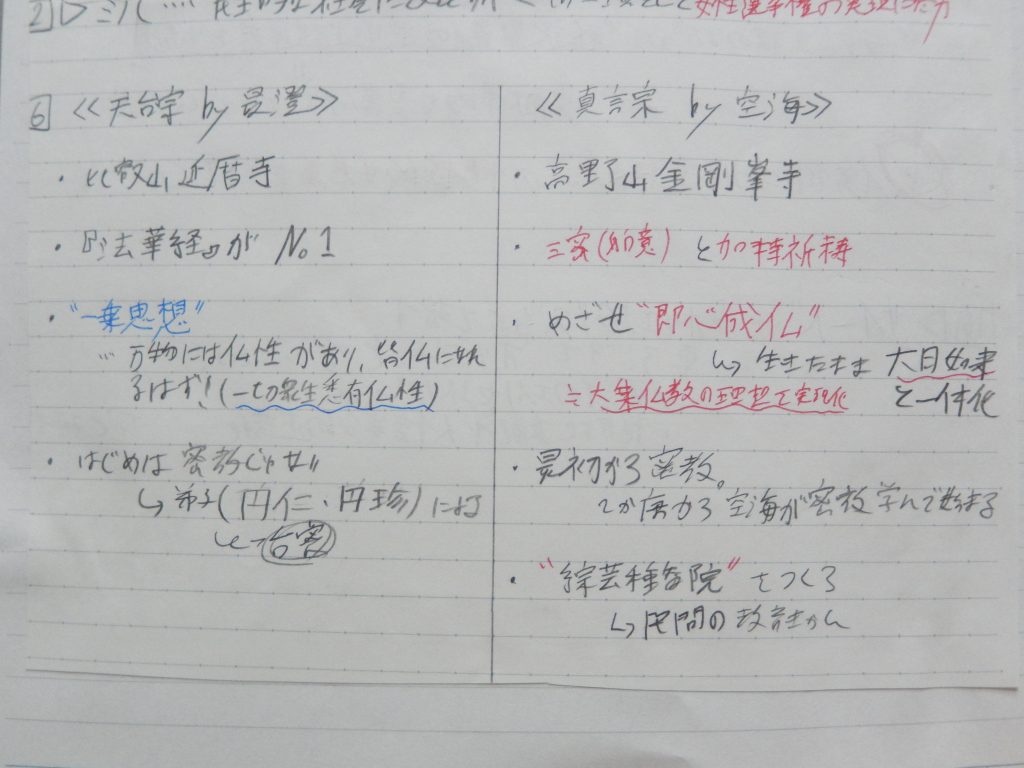 女性選挙権の実現に尽力
6 《天台宗 by 最澄》
・比叡山延暦寺
・『法華経』が No.1
・"一乗思想"
… 万物には仏性があり、皆仏になれ
るはず!(一切衆生悉有仏性)
・はじめは密教じゃせ"
↳ 弟子(円仁・円珍)による
↳ 台密
《真言宗 by 空海》
・高野山金剛峯寺
・三密(如意)と加持祈祷
・めざせ"即心成仏"
↳ 生きたまま 大日如来
と一体化
≒大乗仏教の理想を実現化
・最初から密教。
唐から空海が密教学んで始まる
・"綜芸種智院"をつくる
↳ 民間の